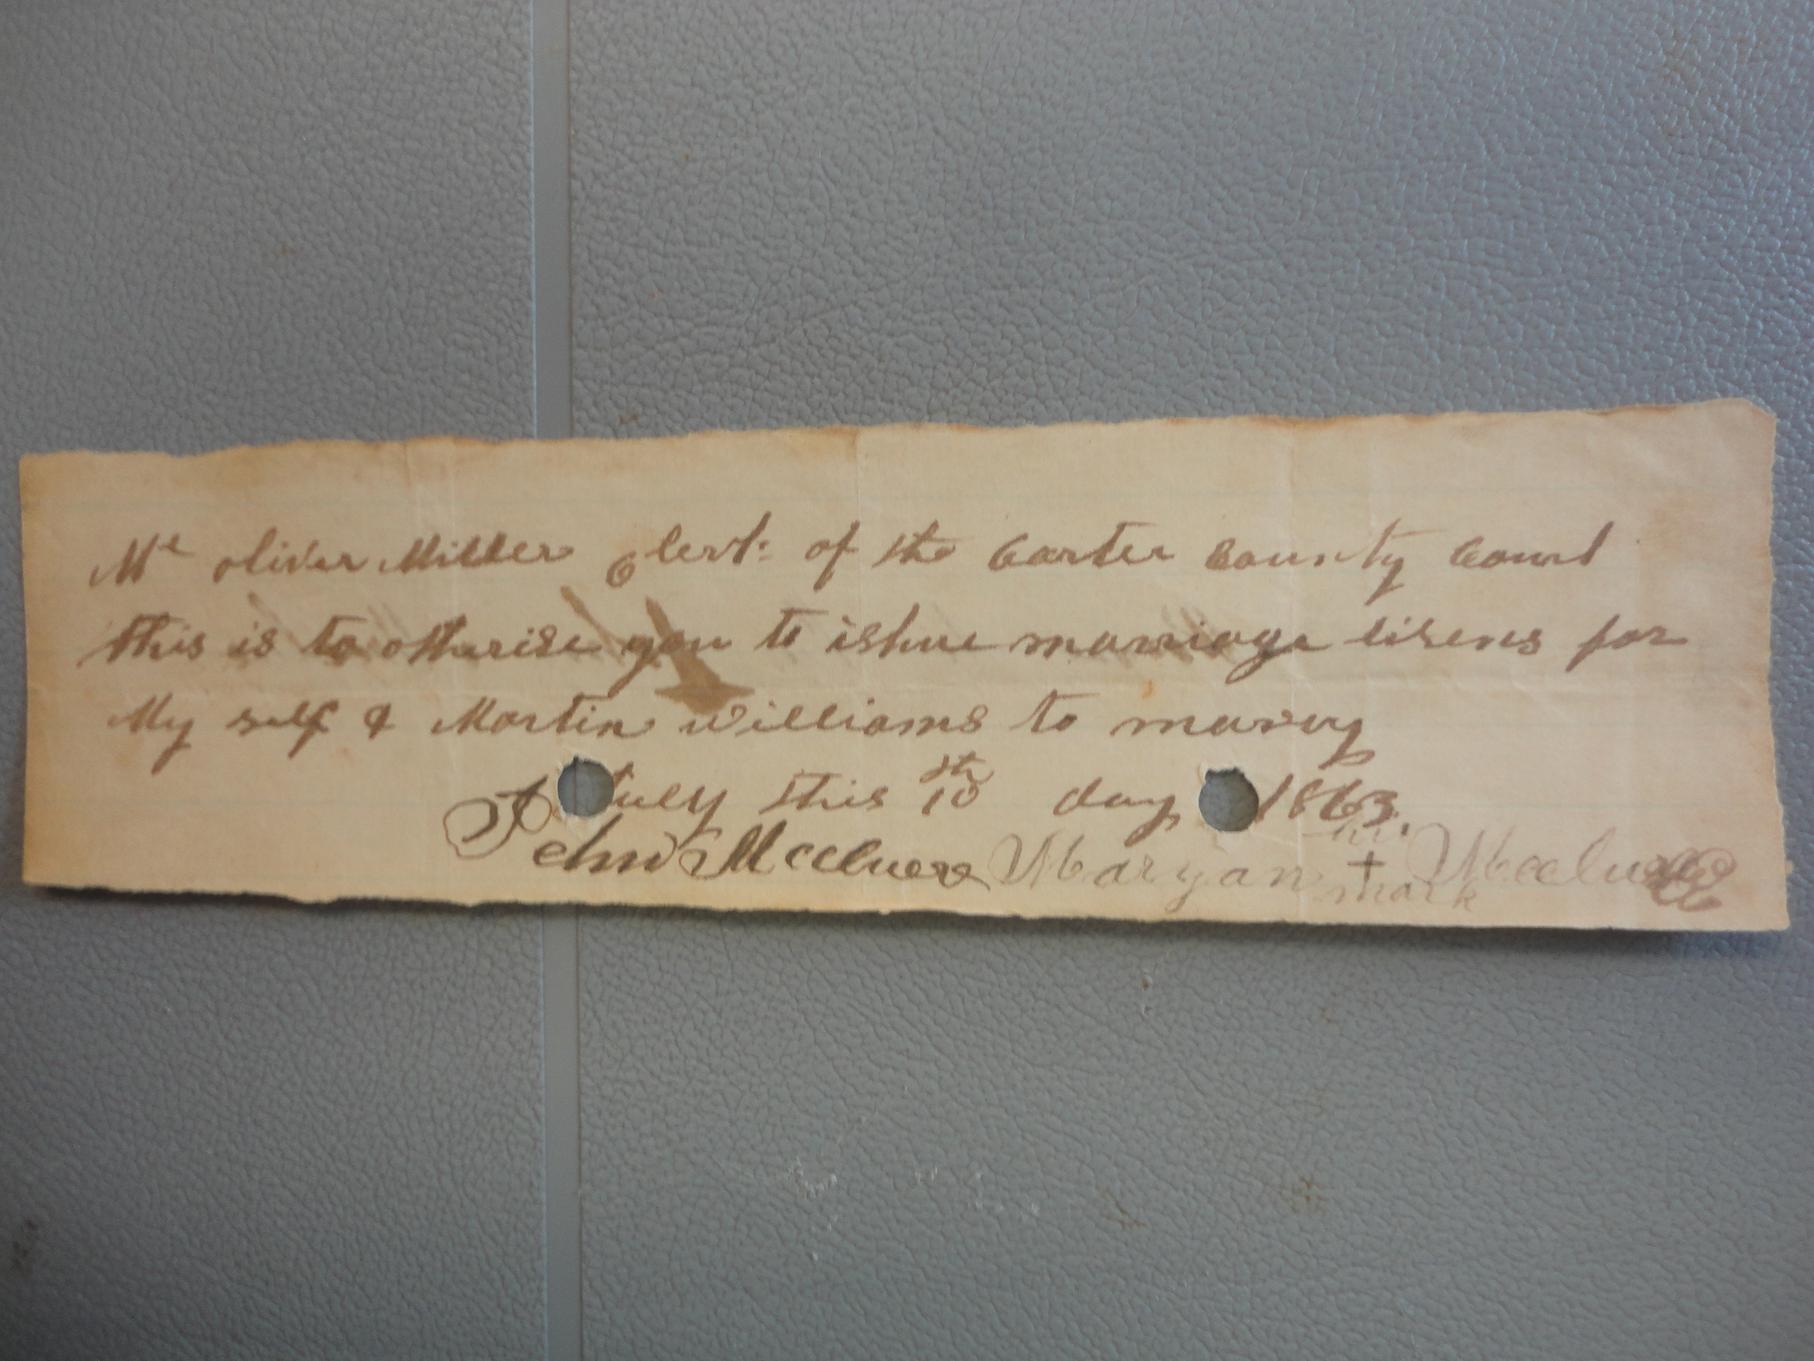 Mr oliver Miller Clerk of the Carter County Court
this is to otherise you to ishue marriage lisens for
My self & Martin Williams to marry
July this 10th day 1863.
John Mcclure Maryan + Mcclure
mark